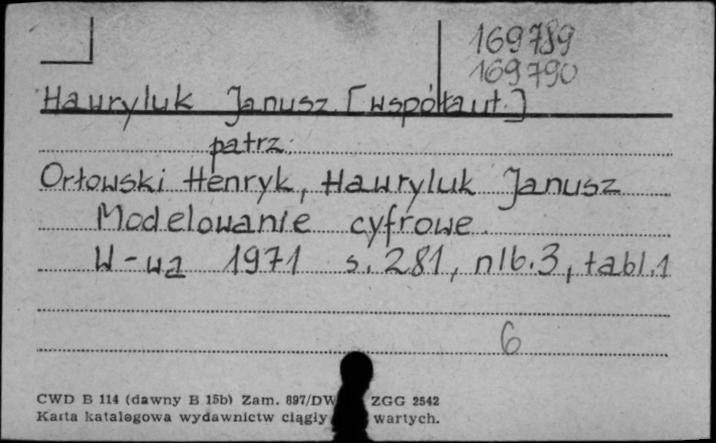 169789
169790
Hawryluk Janusz [współaut.]
patrz:
Orłowski Henryk, Hawryluk Janusz
Modelowanie cyfrowe.
W-wa 1971 s. 281, nlb. 3, tabl. 1
6
CWD B 114 (dawny B 15b) Zam. 897/DW ZGG 2542
Karta katalogowa wydawnictw ciągły wartych.